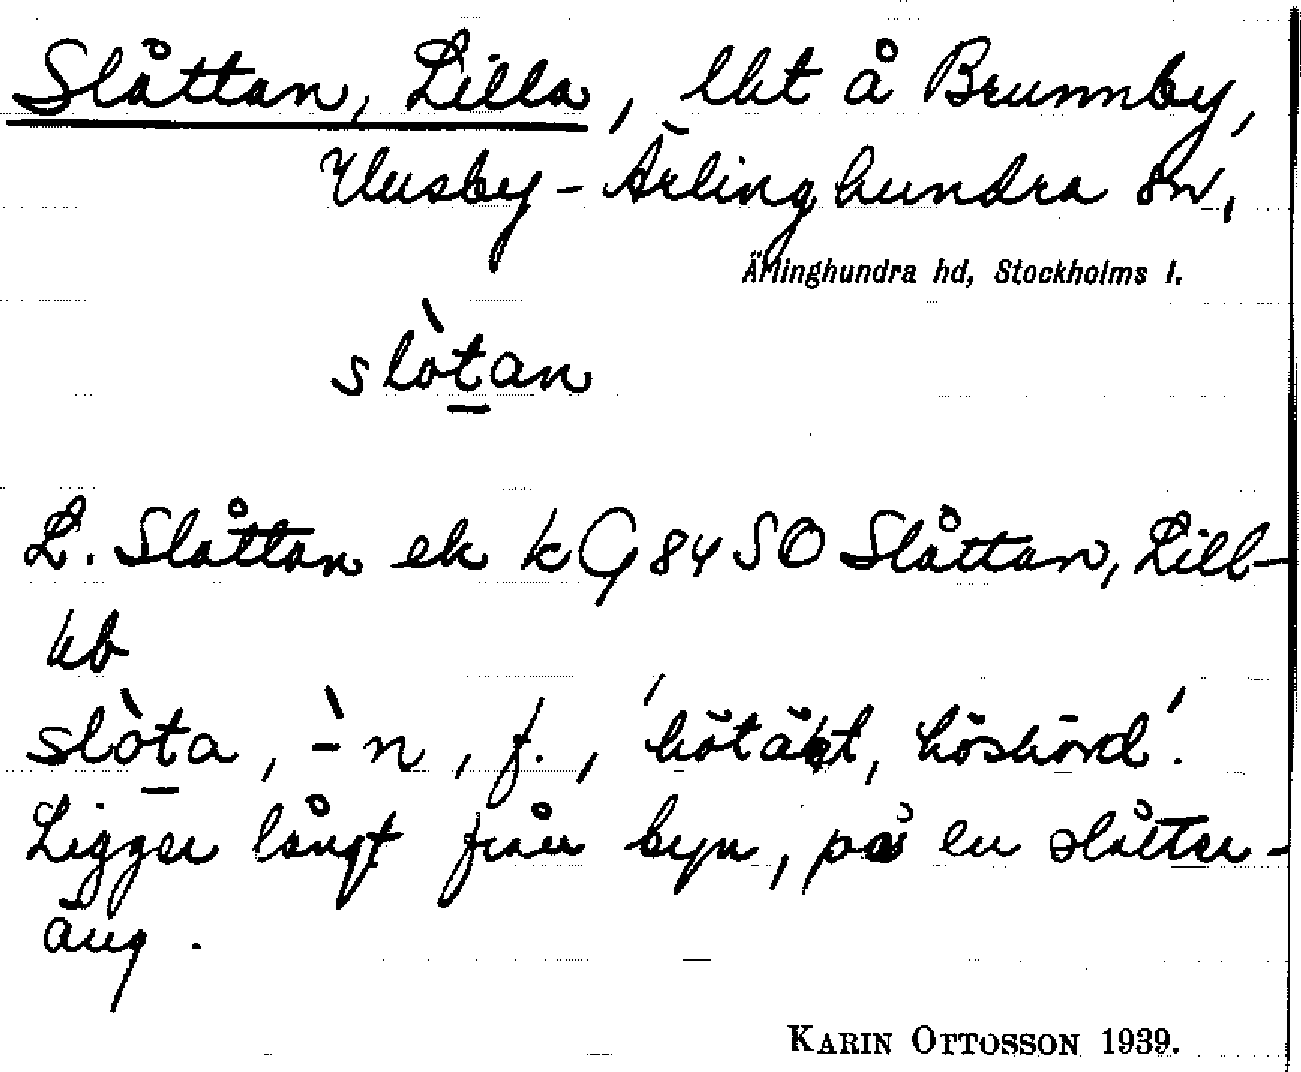 Slåttan, Lilla, lht å Brunnby,
Husby-Ärlinghundra sn,
Ärlinghundra hd, Stockholms l.
slòtan
L. Slåttan ek kG 84 SO Slåttan, Lill-
kb
slòta, -̀n, f., 'hötäkt, höskörd'.
Ligger långt från byn, på en slåtter-
äng.
KARIN OTTOSSON 1939.